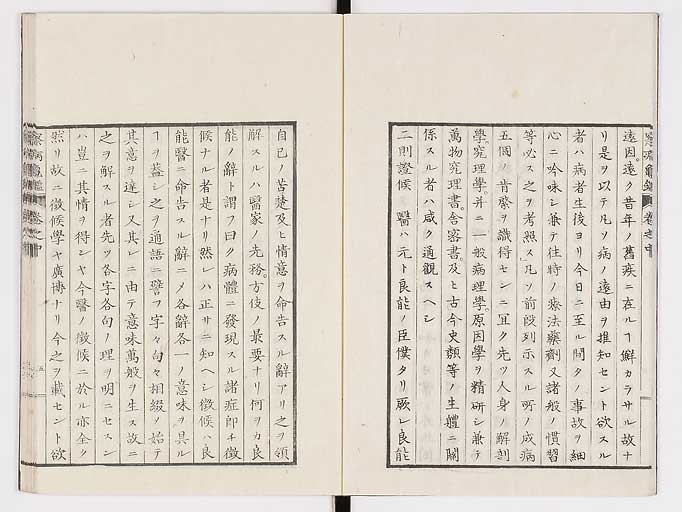 遠因。遠ク昔年ノ舊疾ニ在ルヿ鮮カラサル故ナ
リ是ヲ以テ凡ソ病ノ遠由ヲ推知セント欲スル
者ハ病者生後ヨリ今日ニ至ル間タノ事故ヲ細
心ニ吟味シ兼テ往時ノ療法藥劑又諸般ノ慣習
等必ス之ヲ考照スヘシ前段列示スル所ノ成病
五個ノ肯綮ヲ識得センニ宜ク先ツ人身ノ解剖
學。究理學。并ニ一般病理學。原因學ヲ精研シ兼テ
萬物究理書。舎密書及ヒ古今史類等ノ生體ニ關
係スル者ハ咸ク通觀スヘシ
二則證候 醫ハ元ト良能ノ臣僕タリ厥レ良能
自己ノ苦楚及ヒ情意ヲ命告スル辭アリ之ヲ領
解スルハ醫家ノ先務。方伎ノ最要ナリ何ヲカ良
能ノ辭ト謂フ曰ク病體ニ發現スル諸症即チ徴
候ナル者是ナリ然レハ正サニ知ヘシ徴候ハ良
能醫ニ命告スル辭ニメ各辭各一ノ意味ヲ具ル
ヿヲ蓋シ之ヲ通語ニ譬フ字々句々相綴ノ始テ
其意ヲ達シ又其レニ由テ意味萬般ヲ生ス故ニ
之ヲ解スル者先ツ各字各句ノ理ヲ明ニセスン
ハ豈ニ其情ヲ得シヤ今醫ノ徴候ニ於ル亦全ク
然リ故ニ徴候學ヤ廣博ナリ今之ヲ載セント欲